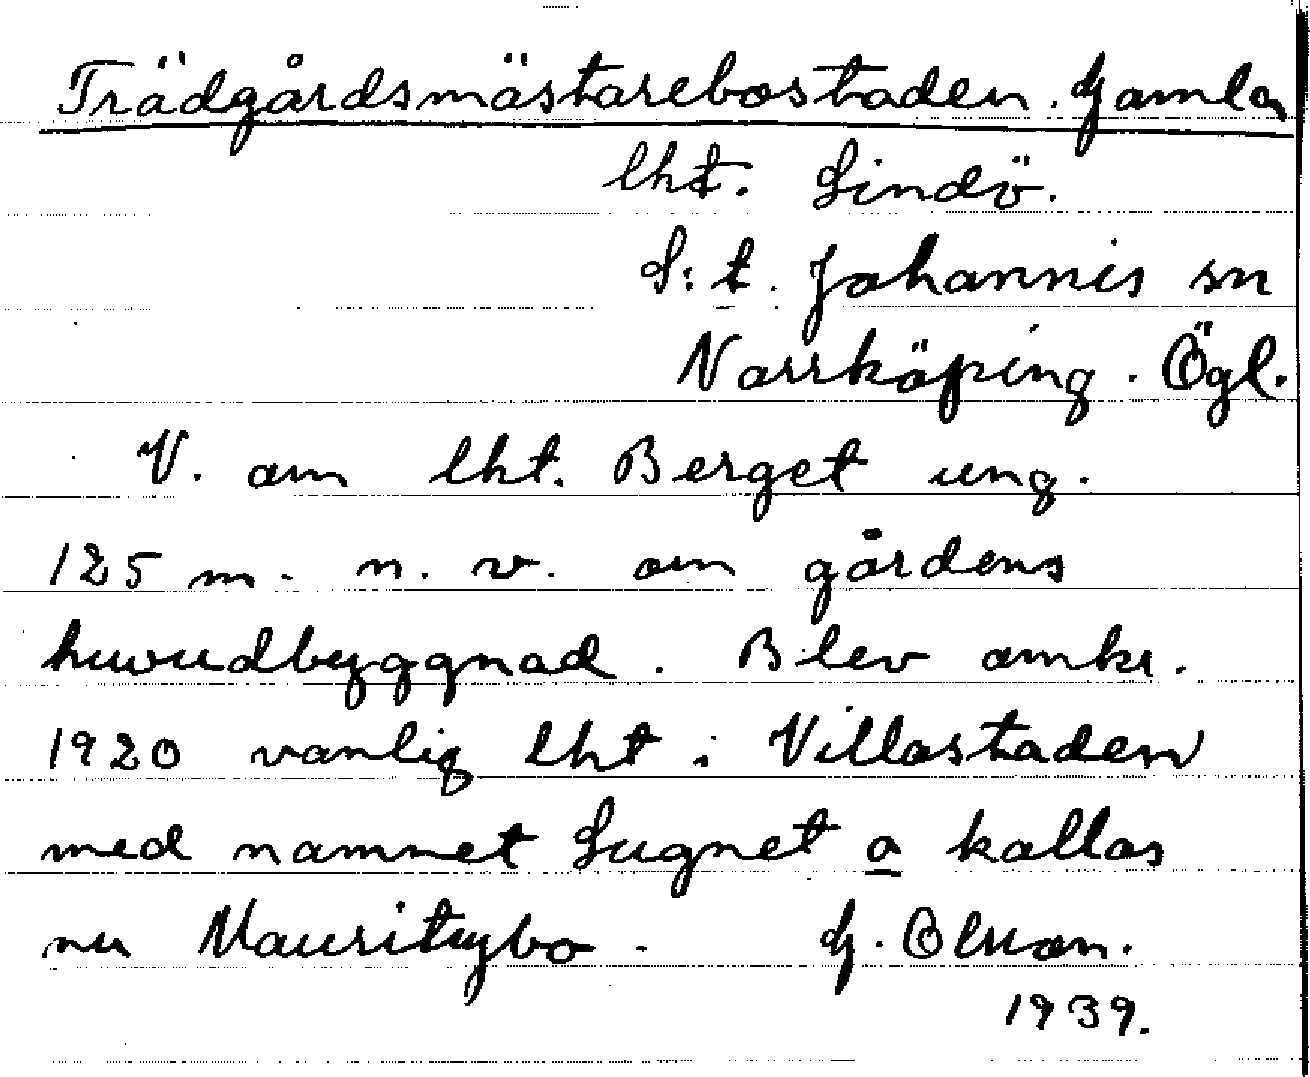 Trädgårdsmästarebostaden. Gamla
lht. Lindö.
S:t. Johannis sn
Norrköping. Ögl.
V. om lht. Berget ung.
125 m. n. v. om gårdens
huvudbyggnad. Blev omkr.
1920 vanlig lht i Villastaden
med namnet Lugnet o kallas
nu Mauritzbo. G. Olson.
1939.